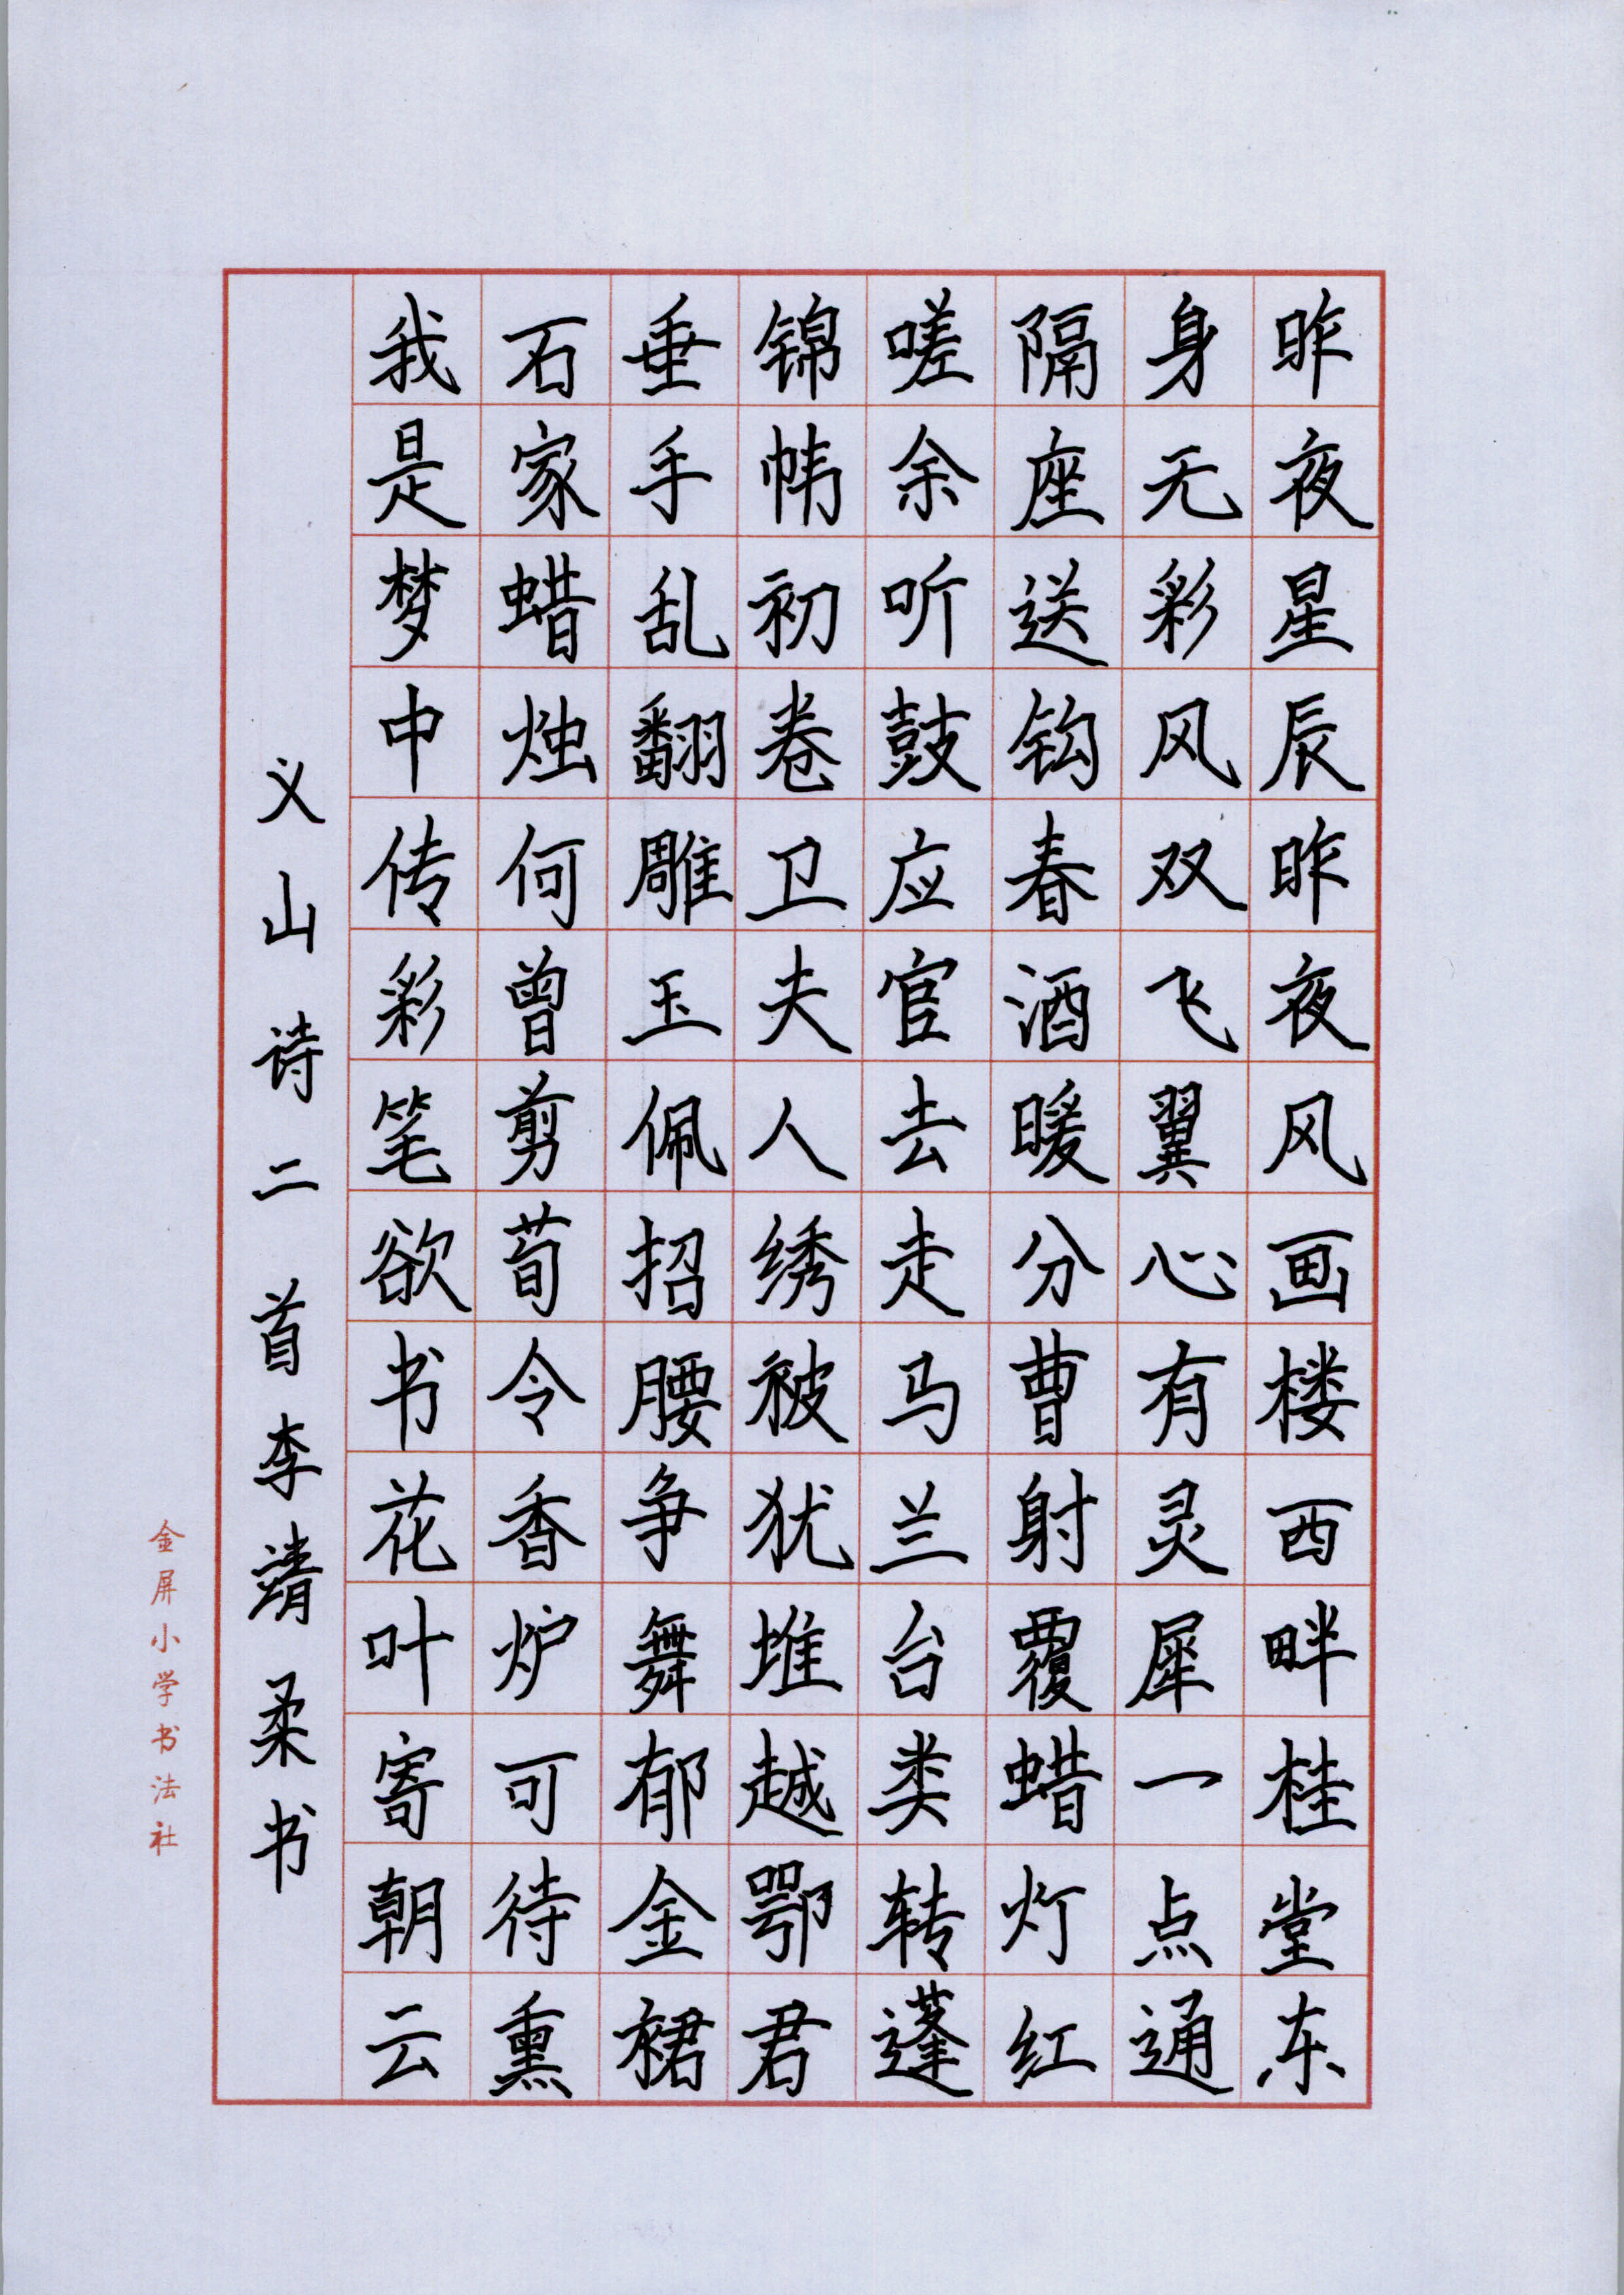 昨夜星辰昨夜风画楼西畔桂堂东
身无彩风双飞翼心有灵犀一点通
隔座送钩春酒暖分曹射覆蜡灯红
嗟余听鼓应官去走马兰台类转蓬
锦帏初卷卫夫人绣被犹堆越鄂君
垂手乱翻雕玉佩招腰争舞郁金裙
石家蜡烛何曾剪荀令香炉可待熏
我是梦中传彩笔欲书花叶寄朝云
义山诗二首李靖柔书
金屏小学书法社